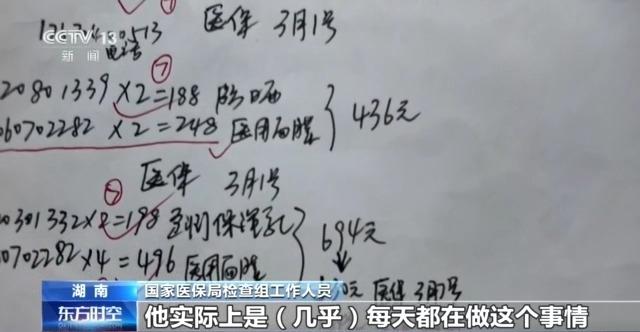 CCTV 13
新闻
医保 3月1号
⑦
20801339 ×2=188 防晒
060702282 ×2=248 医用面膜
436元
医保 3月1号
0301332×2=198
0702282×4=496 医用面膜
694元
医保
湖南
国家医保局检查组工作人员
东方时空
他实际上是（几乎）每天都在做这个事情